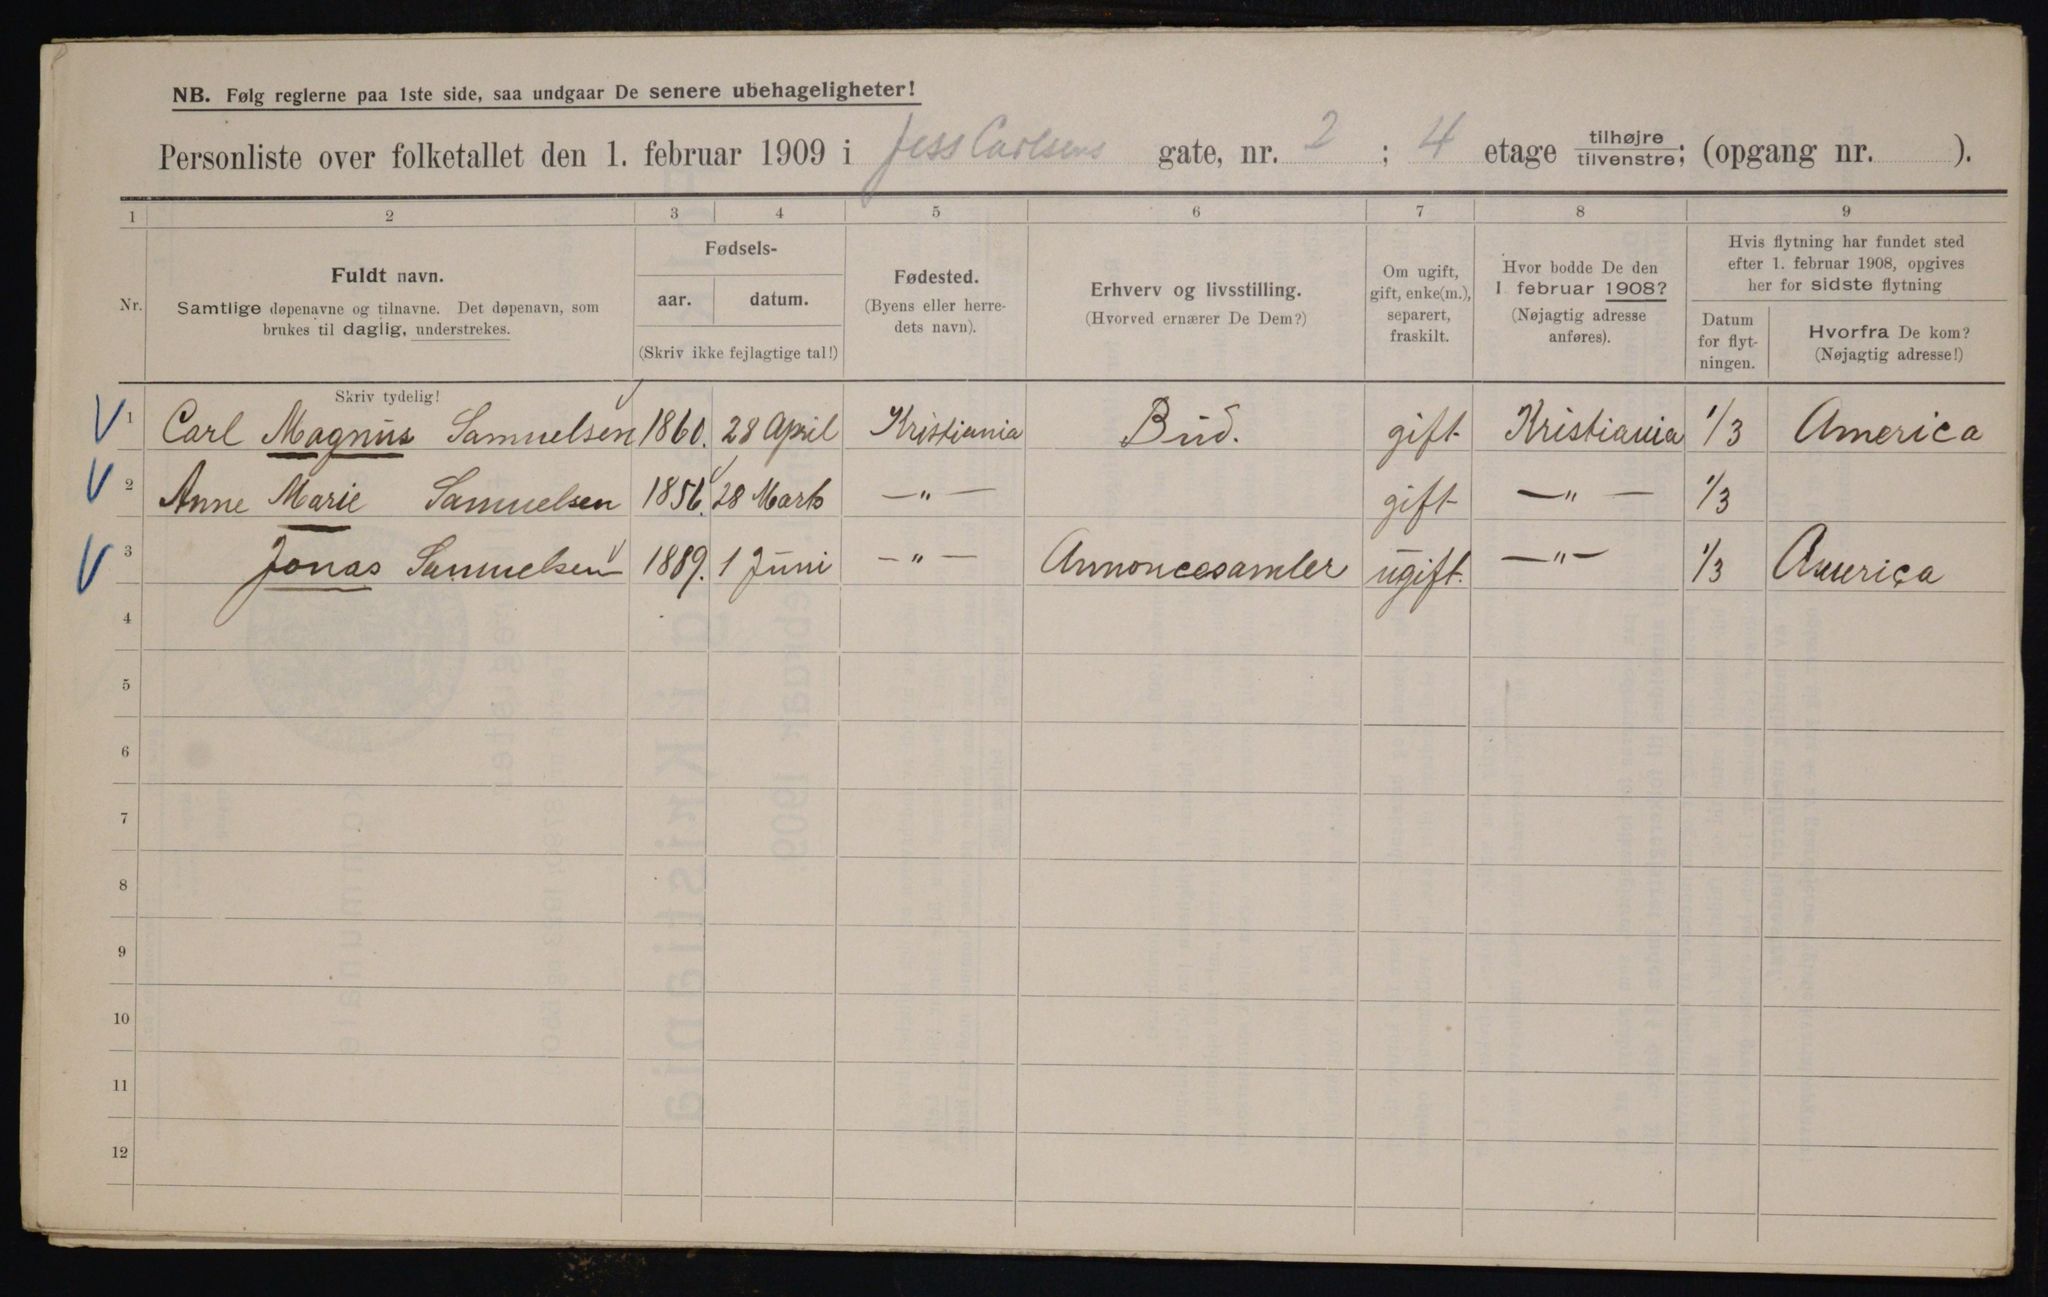 NB. Følg reglerne paa 1ste side, saa undgaar De senere ubehageligheter!
Personliste over folketallet den 1. februar 1909 i Jess Carlsens gate, nr. 2 ; 4 etage tilhøjre/tilvenstre; (opgang nr. ).
1 2 3 4 5 6 7 8 9
Nr.
Fuldt navn.
Samtlige døpenavne og tilnavne. Det døpenavn, som
brukes til daglig, understrekes.
Skriv tydelig!
Fødsels-
aar. datum.
(Skriv ikke fejlagtige tal!)
Fødested.
(Byens eller herre-
dets navn).
Erhverv og livsstilling.
(Hvorved ernærer De Dem?)
Om ugift,
gift, enke(m.),
separert,
fraskilt.
Hvor bodde De den
1 februar 1908?
(Nøjagtig adresse
anføres).
Hvis flytning har fundet sted
efter 1. februar 1908, opgives
her for sidste flytning
Datum
for flyt-
ningen.
Hvorfra De kom?
(Nøjagtig adresse!)
1 Carl Magnus Samuelsen 1860. 28 April Kristiania Bud. gift Kristiania 1/3 America
2 Anne Marie Samuelsen 1856. 28 Marts —"— gift —"— 1/3
3 Jonas Samuelsen 1889. 1 Juni —"— Annoncesamler ugift. —"— 1/3 America
4
5
6
7
8
9
10
11
12